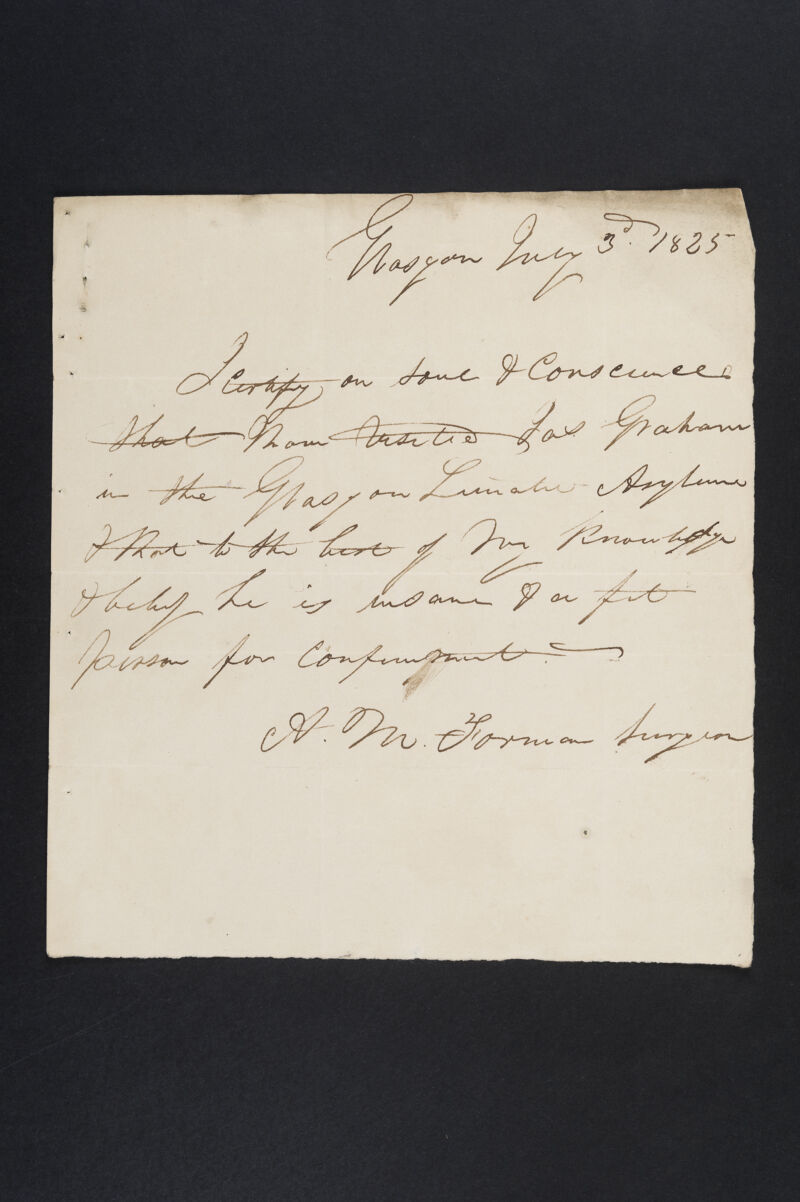 Glasgow July 3d. 1825
I certify on soul & Conscience
that I have visited Jas Graham
in the Glasgow Lunatic Asylum
& that to the best of my knowledge
& belief he is insane & a fit
person for confinement.
A. M. Forman Surgeon